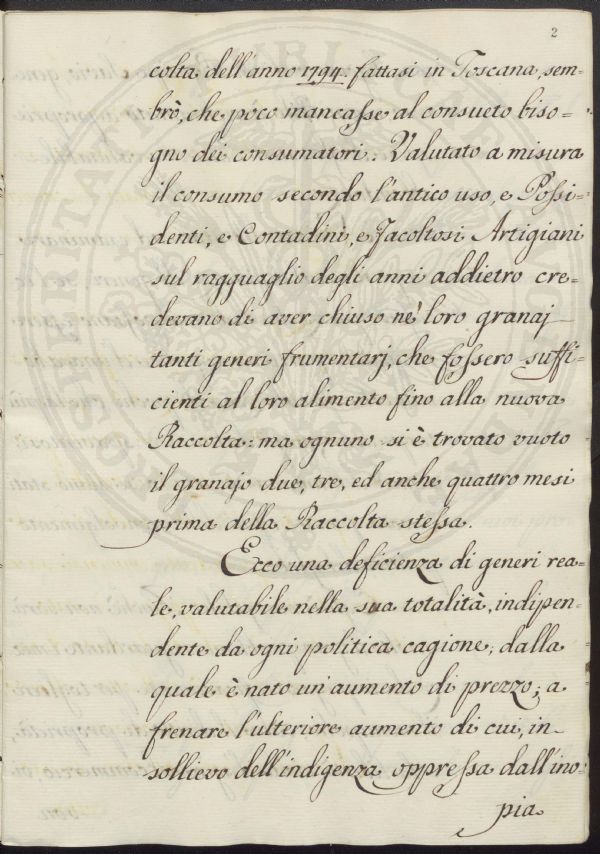 2
colta dell'anno 1794. fattasi in Toscana, sem=
brò, che poco mancasse al consueto biso=
gno dei consumatori. Valutato a misura
il consumo secondo l'antico uso, e Possi=
denti, e Contadini, e Facoltosi Artigiani
sul ragguaglio degli anni addietro cre=
devano di aver chiuso ne' loro granaj
tanti generi frumentarj, che fossero suffi=
cienti al loro alimento fino alla nuova
Raccolta: ma ognuno si è trovato vuoto
il granajo due, tre, ed anche quattro mesi
prima della Raccolta stessa.
Ecco una deficienza di generi rea=
le, valutabile nella sua totalità, indipen=
dente da ogni politica cagione, dalla
quale è nato un'aumento di prezzo; a
frenare l'ulteriore aumento di cui, in=
sollievo dell'indigenza oppressa dall'ino=
pia